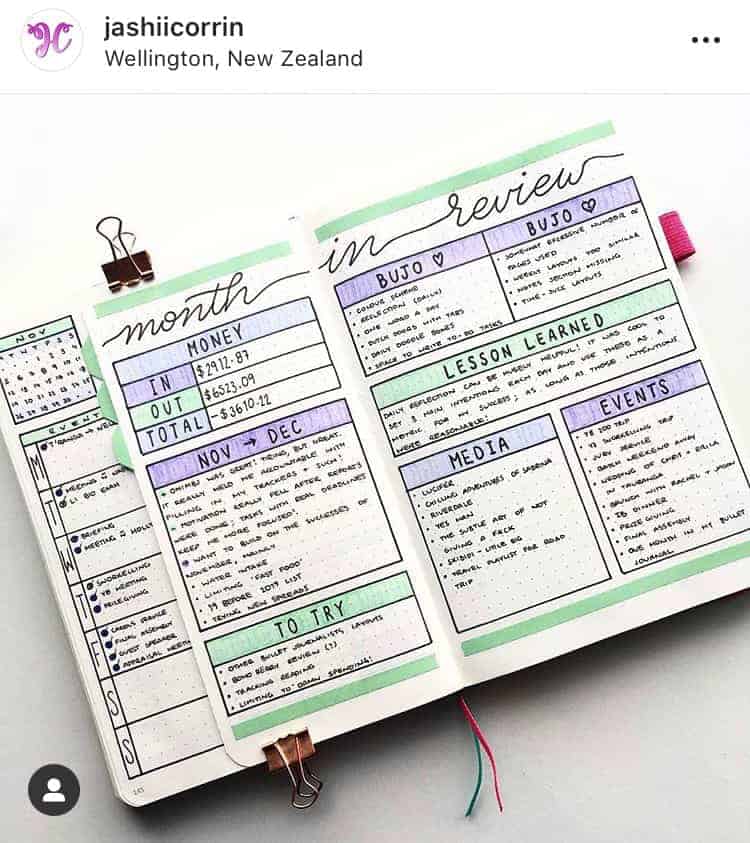 jashiicorrin
Wellington, New Zealand
NOV
EVENT
M
MEETING
T
L1 BIO EXAM
W
BRIEFING
MEETING
T
SNORKELLING
YB MEETING
PRIZEGIVING
F
CAROLS SERVICE
FINAL ASSEMBLY
GUEST SPEAKER
APPRAISAL MEETIN
S
S
month
MONEY
IN $2912.87
OUT $6523.09
TOTAL -$3610.22
NOV → DEC
OHIMBJ WAS GREAT! TIRING, BUT GREAT.
IT REALLY HELD ME ACCOUNTABLE WITH
FILLING IN MY TRACKERS + SUCH!
MOTIVATION REALLY FELL AFTER REPORTS
WERE DONE; TASKS WITH REAL DEADLINES
KEEP ME MORE FOCUSED!
WANT TO BUILD ON THE SUCCESSES OF
NOVEMBER, MAINLY
• WATER INTAKE
• LIMITING 'FAST FOOD'
• 19 BEFORE 2019 LIST
• TRYING NEW SPREADS
TO TRY
• OTHER BULLET JOURNALISTS LAYOUTS
• BOHO BERRY REVIEW (?)
• TRACKING READING
• LIMITING TO DOWN SPENDING!
in review
BUJO ♡
• COLOUR SCHEME
• REFLECTION (DAILY)
• ONE WORD A DAY
• DUTCH DOORS WITH TABS
• DAILY DOODLE BOXES
• SPACE TO WRITE TO-DO TASKS
BUJO
• SOMEWHAT EXCESSIVE NUMBER OF
PAGES USED
• WEEKLY LAYOUTS TOO SIMILAR
• NOTES SECTION MISSING
• TIME-SUCK LAYOUTS
LESSON LEARNED
DAILY REFLECTION CAN BE WISELY HELPFUL! IT WAS COOL TO
SET 3 MAIN INTENTIONS EACH DAY AND USE THESE AS A
METRIC FOR MY SUCCESS; AS LONG AS THOSE INTENTIONS
WERE REASONABLE!
MEDIA
• LUCIFER
• CHILLING ADVENTURES OF SABRINA
• RIVERDALE
• YES MAN
• THE SUBTLE ART OF NOT
GIVING A F*CK
• SKIBIDI - LITTLE BIG
• TRAVEL PLAYLIST FOR ROAD
TRIP
EVENTS
• Y8 ZOO TRIP
• SNORKELLING TRIP
• JURY SERVICE
• BATCH WEEKEND AWAY
• WEDDING OF CHRIS + ERICA
IN TAURANGA
• BRUNCH WITH RACHEL + JASON
• IB DINNER
• PRIZE GIVING
• FINAL ASSEMBLY
• ONE MONTH IN MY BULLET
JOURNAL